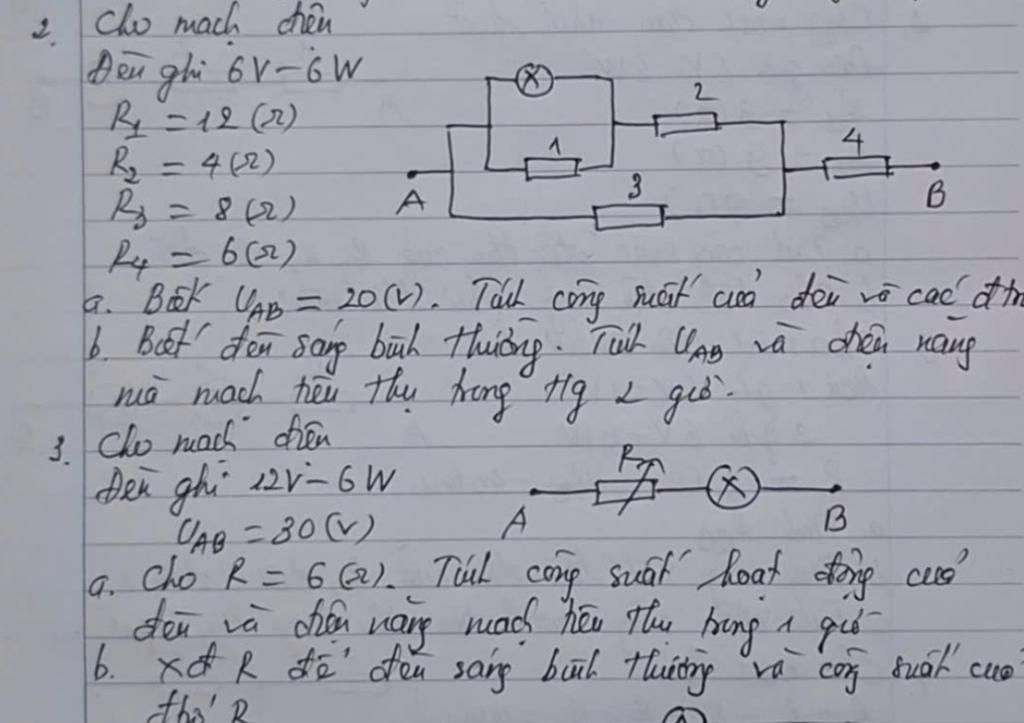 2. Cho mạch điện
Đèn ghi 6V - 6W
R1 = 12 (Ω)
R2 = 4 (Ω)
R3 = 8 (Ω)
R4 = 6 (Ω)
X
1
2
3
4
A
B
a. Biết UAB = 20 (V). Tính công suất của đèn và các đtr
b. Biết đèn sáng bình thường. Tính UAB và điện năng
mà mạch tiêu thụ trong tg 2 giờ.
3. Cho mạch điện
Đèn ghi 12V - 6W
UAB = 30 (V)
R
X
A
B
a. Cho R = 6 (Ω). Tính công suất hoạt động của
đèn và điện năng mạch tiêu thụ trong 1 giờ
b. xđ R để đèn sáng bình thường và công suất của
R